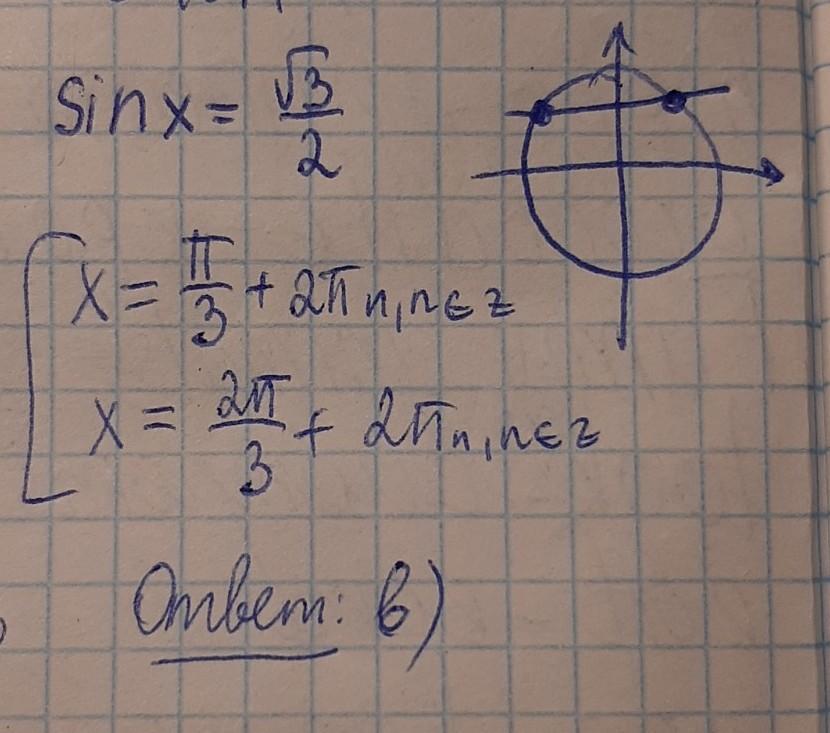 sin x = √3/2
x = π/3 + 2πn, n ∈ z
x = 2π/3 + 2πn, n ∈ z
Ответ: в)